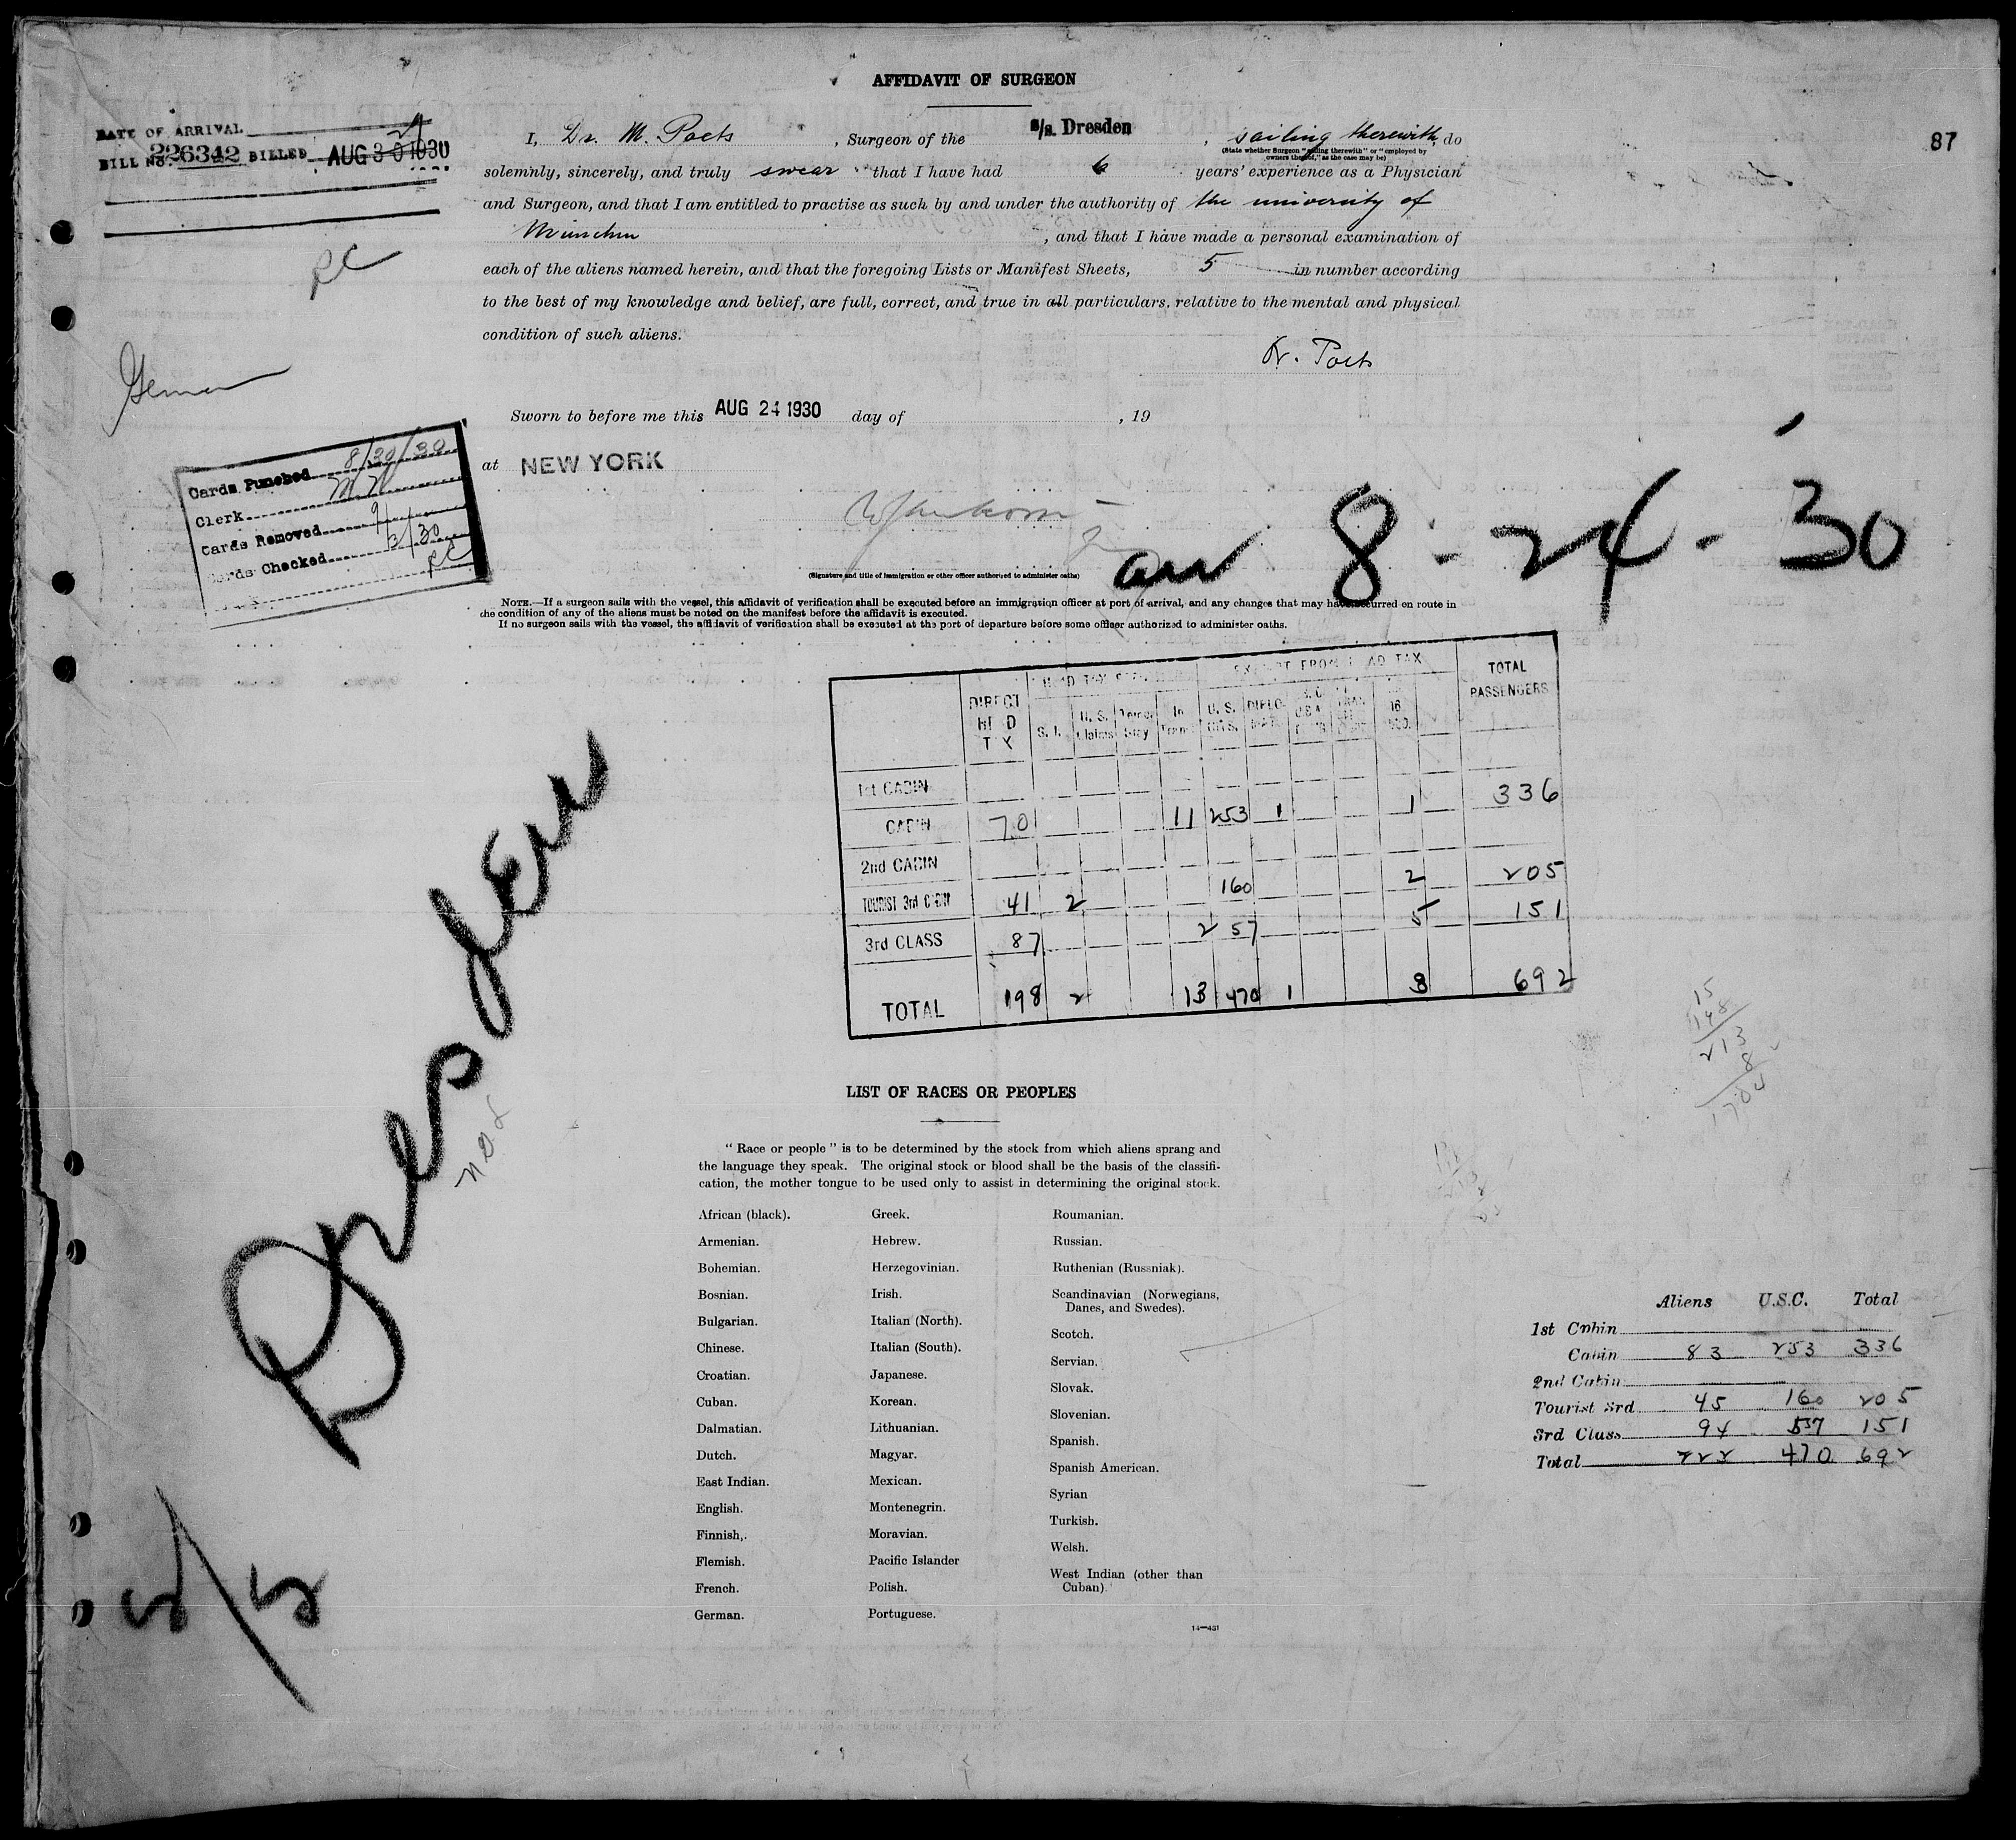 AFFIDAVIT OF SURGEON
87
DATE OF ARRIVAL 24
BILL No. 226342 BILLED AUG 30 1930
I, Dr. M. Poets, Surgeon of the s/s. Dresden, sailing therewith, do
(State whether Surgeon "sailing therewith" or "employed by
owners thereof," as the case may be)
solemnly, sincerely, and truly swear that I have had 6 years' experience as a Physician
and Surgeon, and that I am entitled to practise as such by and under the authority of the university of
München, and that I have made a personal examination of
each of the aliens named herein, and that the foregoing Lists or Manifest Sheets, 5 in number according
to the best of my knowledge and belief, are full, correct, and true in all particulars, relative to the mental and physical
condition of such aliens.
RC
Dr. Poets
Sworn to before me this AUG 24 1930 day of , 19
at NEW YORK
Cards Punched 8/30/30
Clerk
Cards Removed 9/
Cards Checked 3/30
RC
arr 8-24-30
(Signature and title of immigration or other officer authorized to administer oaths)
NOTE.—If a surgeon sails with the vessel, this affidavit of verification shall be executed before an immigration officer at port of arrival, and any changes that may have occurred on route in
the condition of any of the aliens must be noted on the manifest before the affidavit is executed.
If no surgeon sails with the vessel, the affidavit of verification shall be executed at the port of departure before some officer authorized to administer oaths.
HEAD TAX EXEMPT FROM HEAD TAX TOTAL PASSENGERS
DIRECT HEAD TAX S. I. U. S. Claims Stay In Trans U. S. CITS. DIPLO- MATS 16
1st CABIN
CABIN 70 11 253 1 1 336
2nd CABIN
TOURIST 3rd CABIN 41 2 160 2 205
3rd CLASS 87 2 57 5 151
TOTAL 198 2 13 470 1 8 692
Dresden
15
198
213
8
1704
LIST OF RACES OR PEOPLES
"Race or people" is to be determined by the stock from which aliens sprang and
the language they speak. The original stock or blood shall be the basis of the classifi-
cation, the mother tongue to be used only to assist in determining the original stock.
African (black).
Armenian.
Bohemian.
Bosnian.
Bulgarian.
Chinese.
Croatian.
Cuban.
Dalmatian.
Dutch.
East Indian.
English.
Finnish,.
Flemish.
French.
German.
Greek.
Hebrew.
Herzegovinian.
Irish.
Italian (North).
Italian (South).
Japanese.
Korean.
Lithuanian.
Magyar.
Mexican.
Montenegrin.
Moravian.
Pacific Islander
Polish.
Portuguese.
Roumanian.
Russian.
Ruthenian (Russniak).
Scandinavian (Norwegians,
Danes, and Swedes).
Scotch.
Servian.
Slovak.
Slovenian.
Spanish.
Spanish American.
Syrian
Turkish.
Welsh.
West Indian (other than
Cuban).
14—431
Aliens U.S.C. Total
1st Cabin
Cabin 83 253 336
2nd Cabin
Tourist 3rd 45 160 205
3rd Class 94 57 151
Total 222 470 692